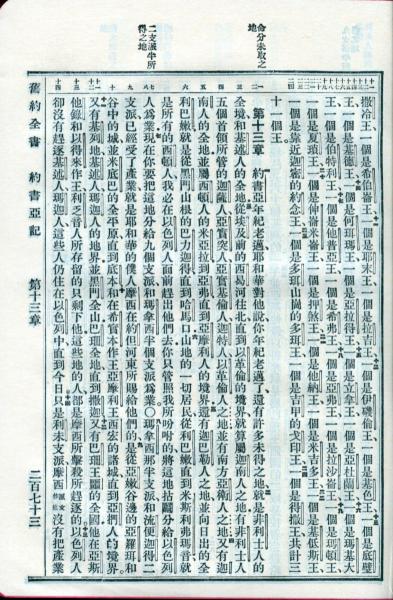 命分未取之地
二支派半所得之地
撒冷王、一個是希伯崙王、一個是耶末王、一個是拉吉王、一個是伊磯倫王、一個是基色王、一個是底璧
王、一個是基德王、一個是何珥瑪王、一個是亞拉得王、一個是立拿王、一個是亞杜蘭王、一個是瑪基大
王、一個是伯特利王、一個是他普亞王、一個是希弗王、一個是亞弗王、一個是拉沙崙王、一個是瑪頓王、
一個是夏瑣王、一個是伸崙米崙王、一個是押煞王、一個是他納王、一個是米吉多王、一個是基低斯王、
一個是靠近迦密的約念王、一個是多珥山崗的多珥王、一個是吉甲的戈印王、一個是得撒王、共計三
十一個王。
第十三章 約書亞年紀老邁、耶和華對他說、你年紀老邁了、還有許多未得之地、就是非利士人的
全境、和基述人的全地、從埃及前的西曷河往北、直到以革倫的境界、就算屬迦南人之地、有非利士人
五個首領所管的迦薩人、亞實突人、亞實基倫人、迦特人、以革倫人之地、並有南方亞衛人之地、又有迦
南人的全地、並屬西頓人的米亞拉、到亞弗、直到亞摩利人的境界、還有迦巴勒人之地、並向日出的全
利巴嫩、就是從黑門山根的巴力迦得、直到哈馬口、山地的一切居民、從利巴嫩直到米斯利弗瑪音、就
是所有的西頓人、我必在以色列人面前趕出他們去、你只管照我所吩咐的、將這地拈鬮分給以色列
人為業、現在你要把這地分給九個支派、和瑪拿西半個支派為業、○瑪拿西那半支派、和流便迦得二
支派、已經受了產業、就是耶和華的僕人摩西、在約但河東所賜給他們的、是從亞嫩谷邊的亞羅珥、和
谷中的城、並米底巴的全平原、直到底本、和在希實本作王亞摩利王西宏的諸城、直到亞捫人的境界、
又有基列地、基述人瑪迦人的地界、並黑門全山、巴珊全地、直到撒迦、又有巴珊王噩的全國、他在亞斯
他錄和以得來作王、利乏音人所存留的只剩下他、這些地的人都是摩西所擊殺、所趕逐的、以色列人
卻沒有趕逐基述人、瑪迦人、這些人仍住在以色列中、直到今日、只是利未支派、摩西沒有把產業
舊約全書 約書亞記 第十三章 二百七十三